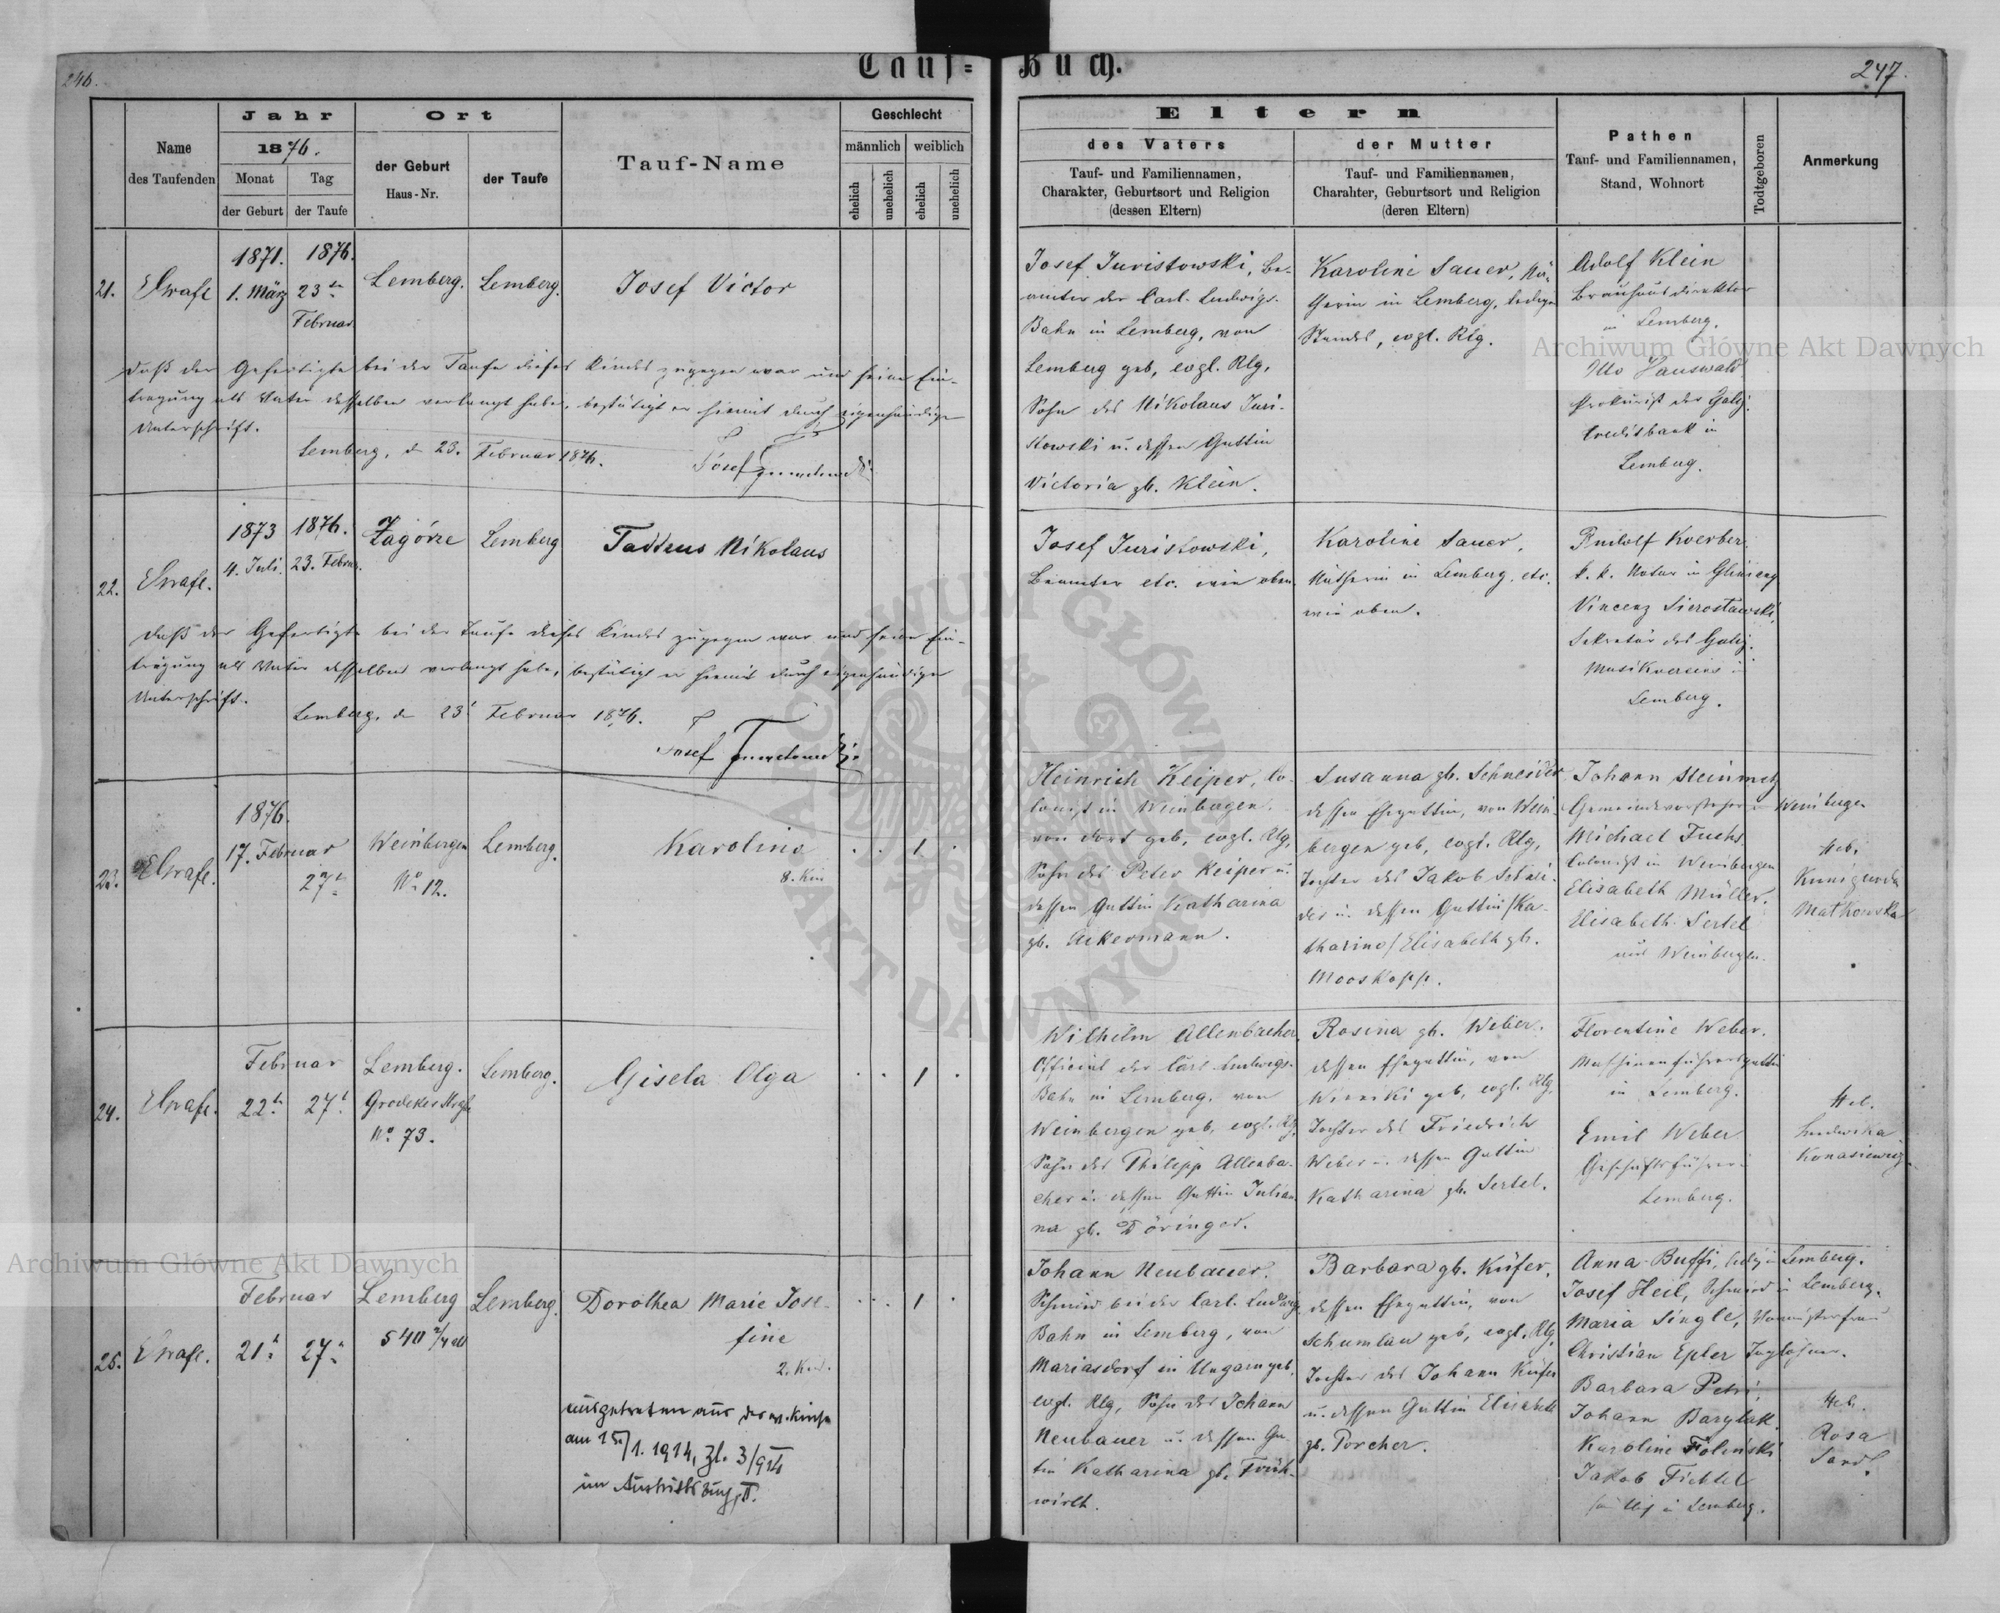 246.
Tauf=
Buch.
247.
Name
des Taufenden
Jahr
1876.
Monat
Tag
der Geburt
der Taufe
Ort
der Geburt
Haus-Nr.
der Taufe
Tauf-Name
Geschlecht
männlich
weiblich
ehelich
unehelich
ehelich
unehelich
Eltern
des Vaters
Tauf- und Familiennamen,
Charakter, Geburtsort und Religion
(dessen Eltern)
der Mutter
Tauf- und Familiennamen,
Charahter, Geburtsort und Religion
(deren Eltern)
Pathen
Tauf- und Familiennamen,
Stand, Wohnort
Todtgeboren
Anmerkung
21.
1871.
1. März
1876.
23
Februar
Lemberg.
Lemberg.
Josef Victor
daß der Gefertigte bei der Taufe dieses Kindes zugegen war und seine Ein-
tragung als Vater desselben verlangt habe, bestätigt er hiemit durch eigenhändige
Unterschrift.
Lemberg, d 23. Februar 1876.
Josef
Josef Juristowski, Be-
amter der Carl-Ludwigs-
Bahn in Lemberg, von
Lemberg geb, evgl. Rlg,
Sohn des Nikolaus Juri-
stowski u. dessen Gattin
Victoria gb. Klein.
Karoline Sauer, Nä-
herin in Lemberg, ledigen
Standes, evgl. Rlg.
Adolf Klein
Brauhausdirektor
in Lemberg.
Otto Hauswald
Prokurist der Galiz.
Creditbank in
Lemberg.
22.
1873
4. Juli.
1876.
23. Februar
Zagórze
Lemberg
Taddeus Nikolaus
daß der Gefertigte bei der Taufe dieses Kindes zugegen war und seine Ein-
tragung als Vater desselben verlangt habe, bestätigt er hiemit durch eigenhändige
Unterschrift.
Lemberg, d 23 Februar 1876.
Josef
Josef Juristowski,
Beamter etc. wie oben.
Karoline Sauer,
Nätherin in Lemberg, etc.
wie oben.
Rudolf Koerber
k. k. Notar in
Vincenz Sierosławski,
Sekretär des Galiz.
Musikvereins in
Lemberg.
23.
1876.
17. Februar
27
Weinbergen
No 12.
Lemberg.
Karoline
8. Kin
1
Heinrich Keiper, Co-
lonist in Weinbergen,
von dort geb, evgl. Rlg,
Sohn des Peter Keiper u.
dessen Gattin Katharina
gb. Ackermann.
Susanna gb. Schneider
dessen Ehegattin, von Wein-
bergen geb, evgl. Rlg,
Tochter des Jakob Schnei-
der u. dessen Gattin /Ka-
tharina/ Elisabeth gb.
Mooskopp.
Johann Steinmetz
Gemeindevorsteher in Weinbergen
Michael Fuchs
Colonist in Weinbergen
Elisabeth Müller.
Elisabeth Sertel
aus Weinbergen.
Heb.
Kunigunda
Matkowska
24.
Februar
22
27
Lemberg.
No 73.
Lemberg.
Gisela Olga
1
Wilhelm Allenbacher,
Official der Carl Ludwigs-
Bahn in Lemberg, von
Weinbergen geb, evgl. Rlg,
Sohn des Philipp Allenba-
cher u. dessen Gattin Julian-
na gb. Döringer.
Rosina gb. Weber.
dessen Ehegattin, von
Winniki geb, evgl. Rlg,
Tochter des Friedrich
Weber u. dessen Gattin
Katharina gb. Sertel.
Florentine Weber.
Maschinenführersgattin
in Lemberg.
Emil Weber
Geschäftsführer
Lemberg.
Heb.
Ludwika
25.
Februar
21
27
Lemberg
540
Lemberg.
Dorothea Marie Jose-
fine
2. Kind.
1
ausgetreten aus der ev. Kirche
am 15/1. 1914, Zl. 3/914
im Austrittsbuch II.
Johann Neubauer.
Schmied bei der Carl-Ludwigs-
Bahn in Lemberg, von
Mariasdorf in Ungarn geb,
evgl. Rlg, Sohn des Johann
Neubauer u. dessen Gat-
tin Katharina gb. Früh-
wirth.
Barbara gb. Küfer,
dessen Ehegattin, von
Schumlau geb, evgl. Rlg,
Tochter des Johann Küfer
u. dessen Gattin Elisabeth
gb. Porcher.
Anna ledig in Lemberg.
Josef Heil, Schmied in Lemberg.
Maria Single,
Christian Epler Taglöhner.
Barbara Petri,
Johann
Karoline
Jakob Fichtel
in Lemberg.
Heb.
Rosa
Archiwum Główne Akt Dawnych
Archiwum Główne Akt Dawnych
ARCHIWUM GŁÓWNE AKT DAWNYCH